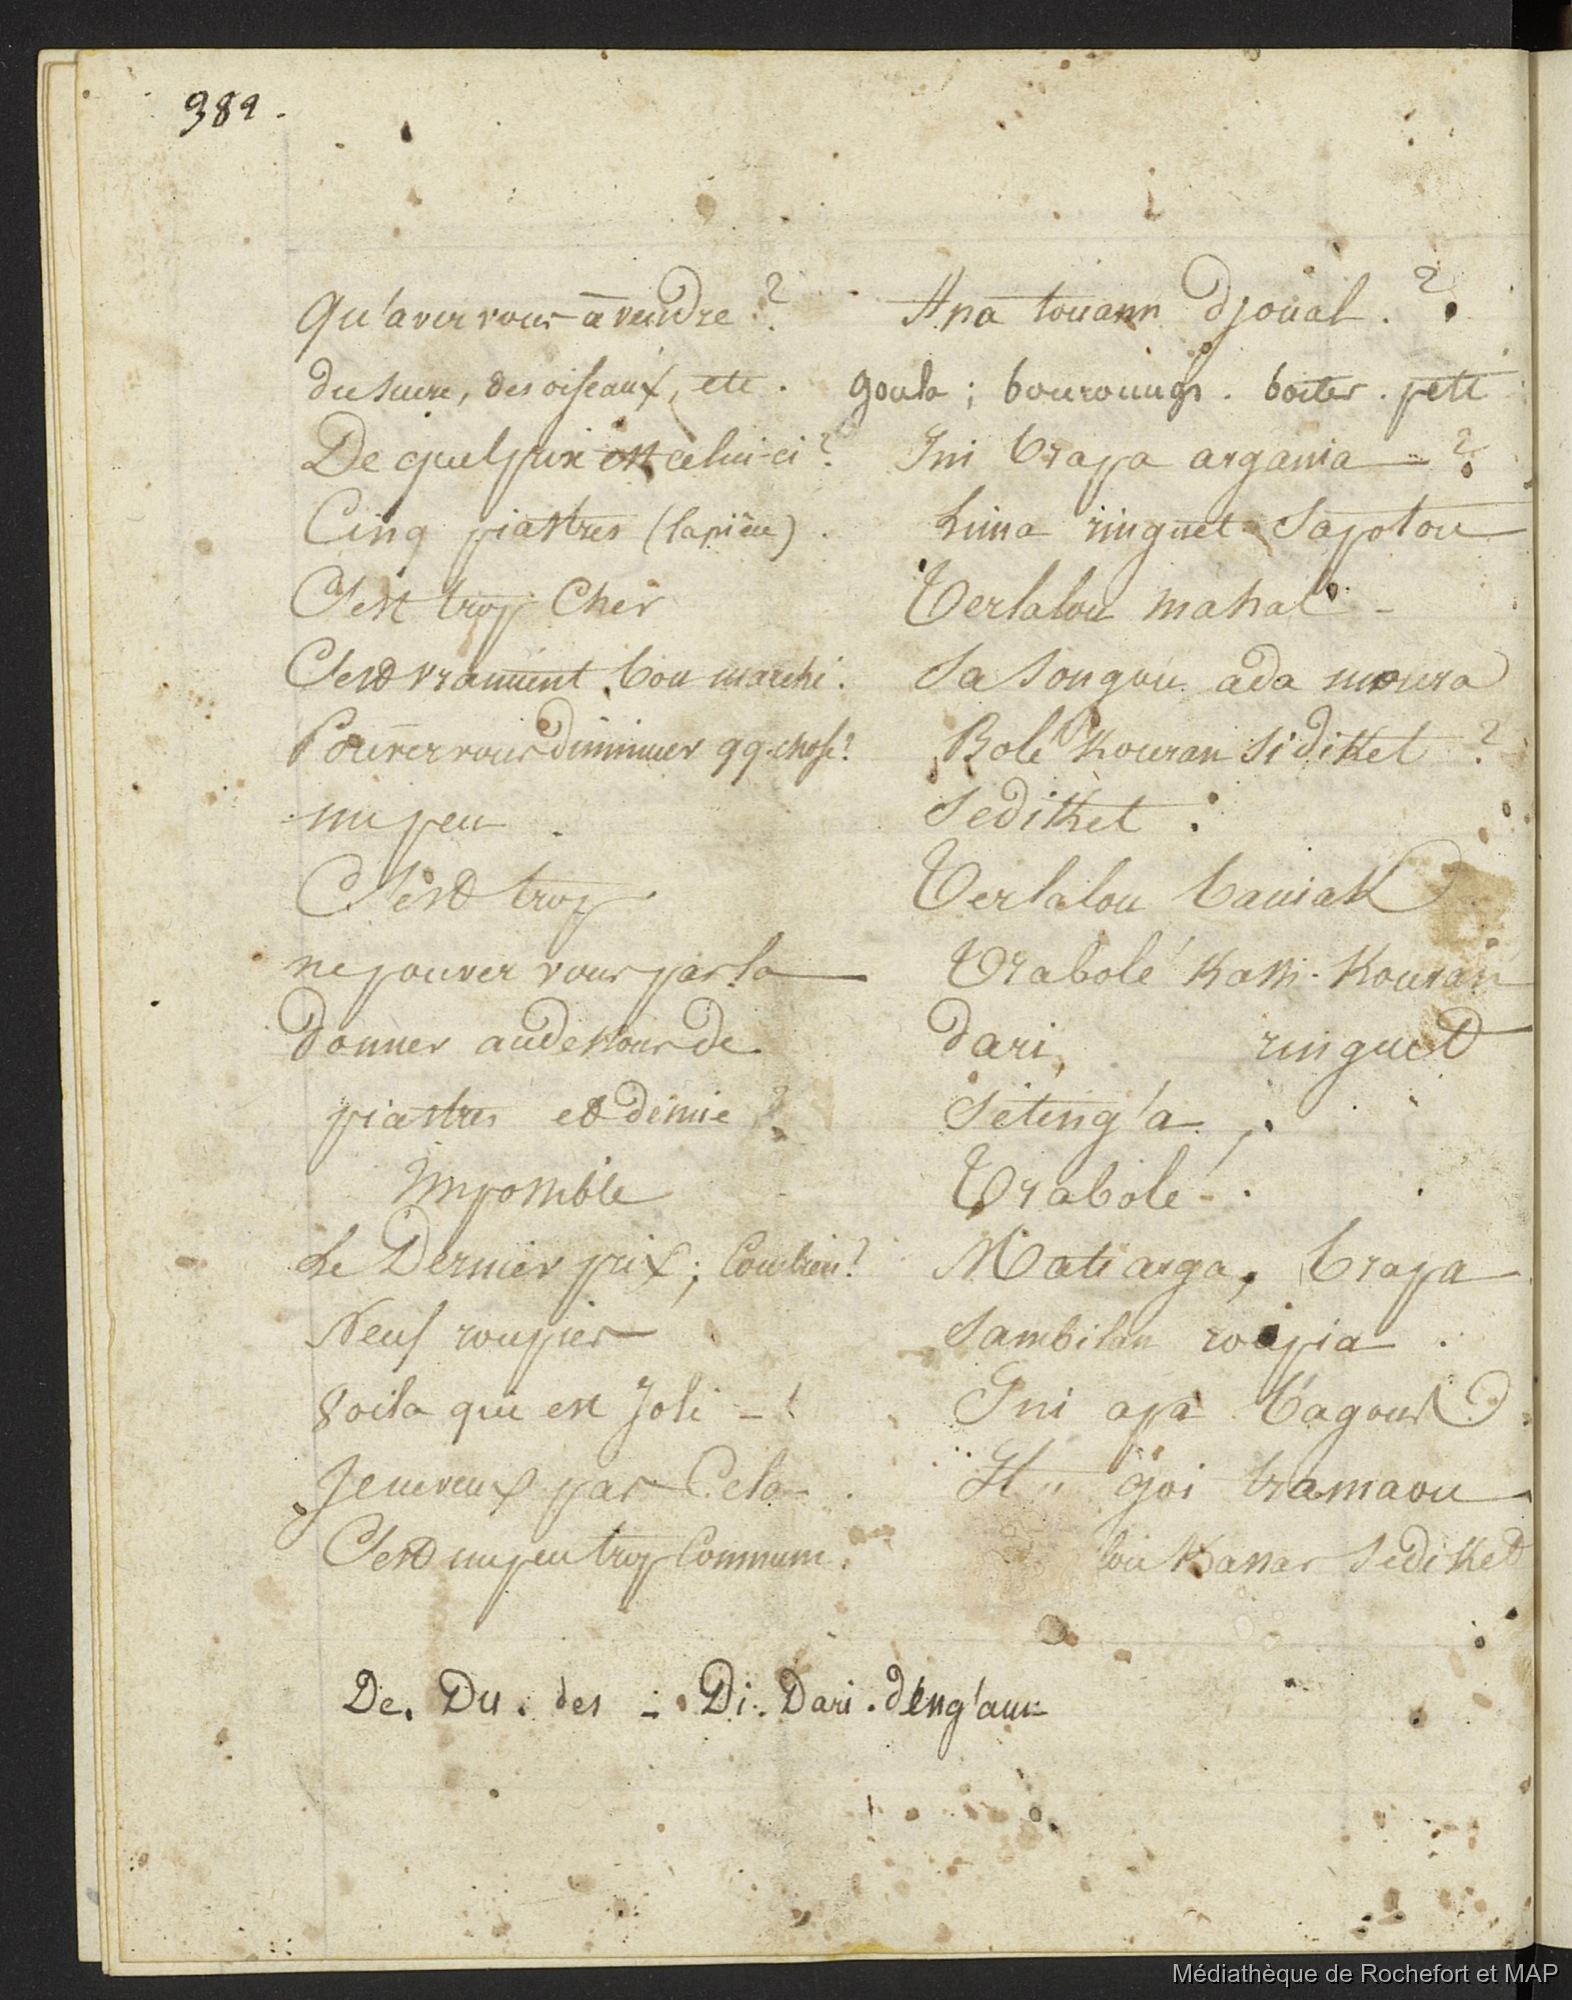 382.
Qu'avez vous à vendre ? Apa touann djoual . ?
du sucre, des oiseaux, etc . goula ; bourouings . boites . peti
De quel prix est celui-ci ? Ini brapa argania ?
Cinq piastres (la pièce) . Lima ringuet Sapotou
C'est trop Cher Terlalou mahal -
C'est vraiment bon marché . Sa Songou ada moura
Pouvez vous diminuer qq. chose ? Bolé Kouran sidiket ?
un peu . Sediket .
C'est trop . Terlalou baniak
ne pouvez vous pas la Trabolé Kassi . Kouran
donner au dessous de dari, ringuet
piastres et demie ? Seteng'a .
Impossible Trabolé - .
Le Dernier prix ; Combien ? Mati arga, brapa
Neuf roupies Sambilan roupia .
Voila qui est Joli - ! Ini apa bagous
Je ne veux pas Cela . It" goi tramaou
C'est un peu trop Commun . lou Kassar Sediket
De . Du . des - . Di . Dari . déng'ann
Médiathèque de Rochefort et MAP